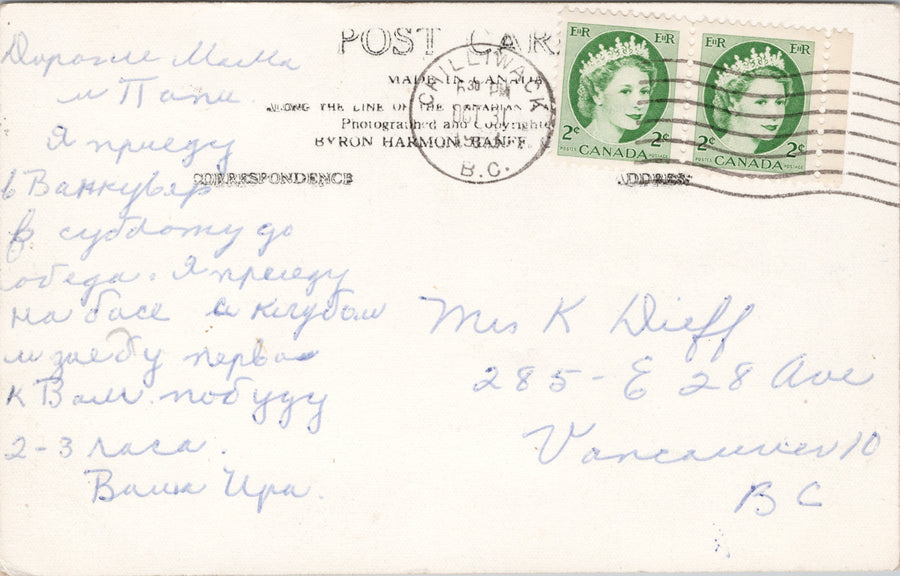 POST CAR
MADE IN CANADA
ALONG THE LINE OF THE CANADIAN
Photographed and Copyrighte
BYRON HARMON, BANFF,
CORRESPONDENCE
ADDRESS
CHILLIWACK
PM
OCT 31
B.C.
EIIR EIIR
2¢ 2¢
POSTES CANADA POSTAGE
EIIR EIIR
2¢ 2¢
POSTES CANADA POSTAGE
Дорогие Мама
и Папа.
Я приеду
в Ванкувер
в субботу до
обеда. Я приеду
на басе с клубом
и заеду перво
к Вам побуду
2-3 часа.
Ваша Ира.
Mrs K Dieff
285 - E 28 Ave
Vancouver 10
BC